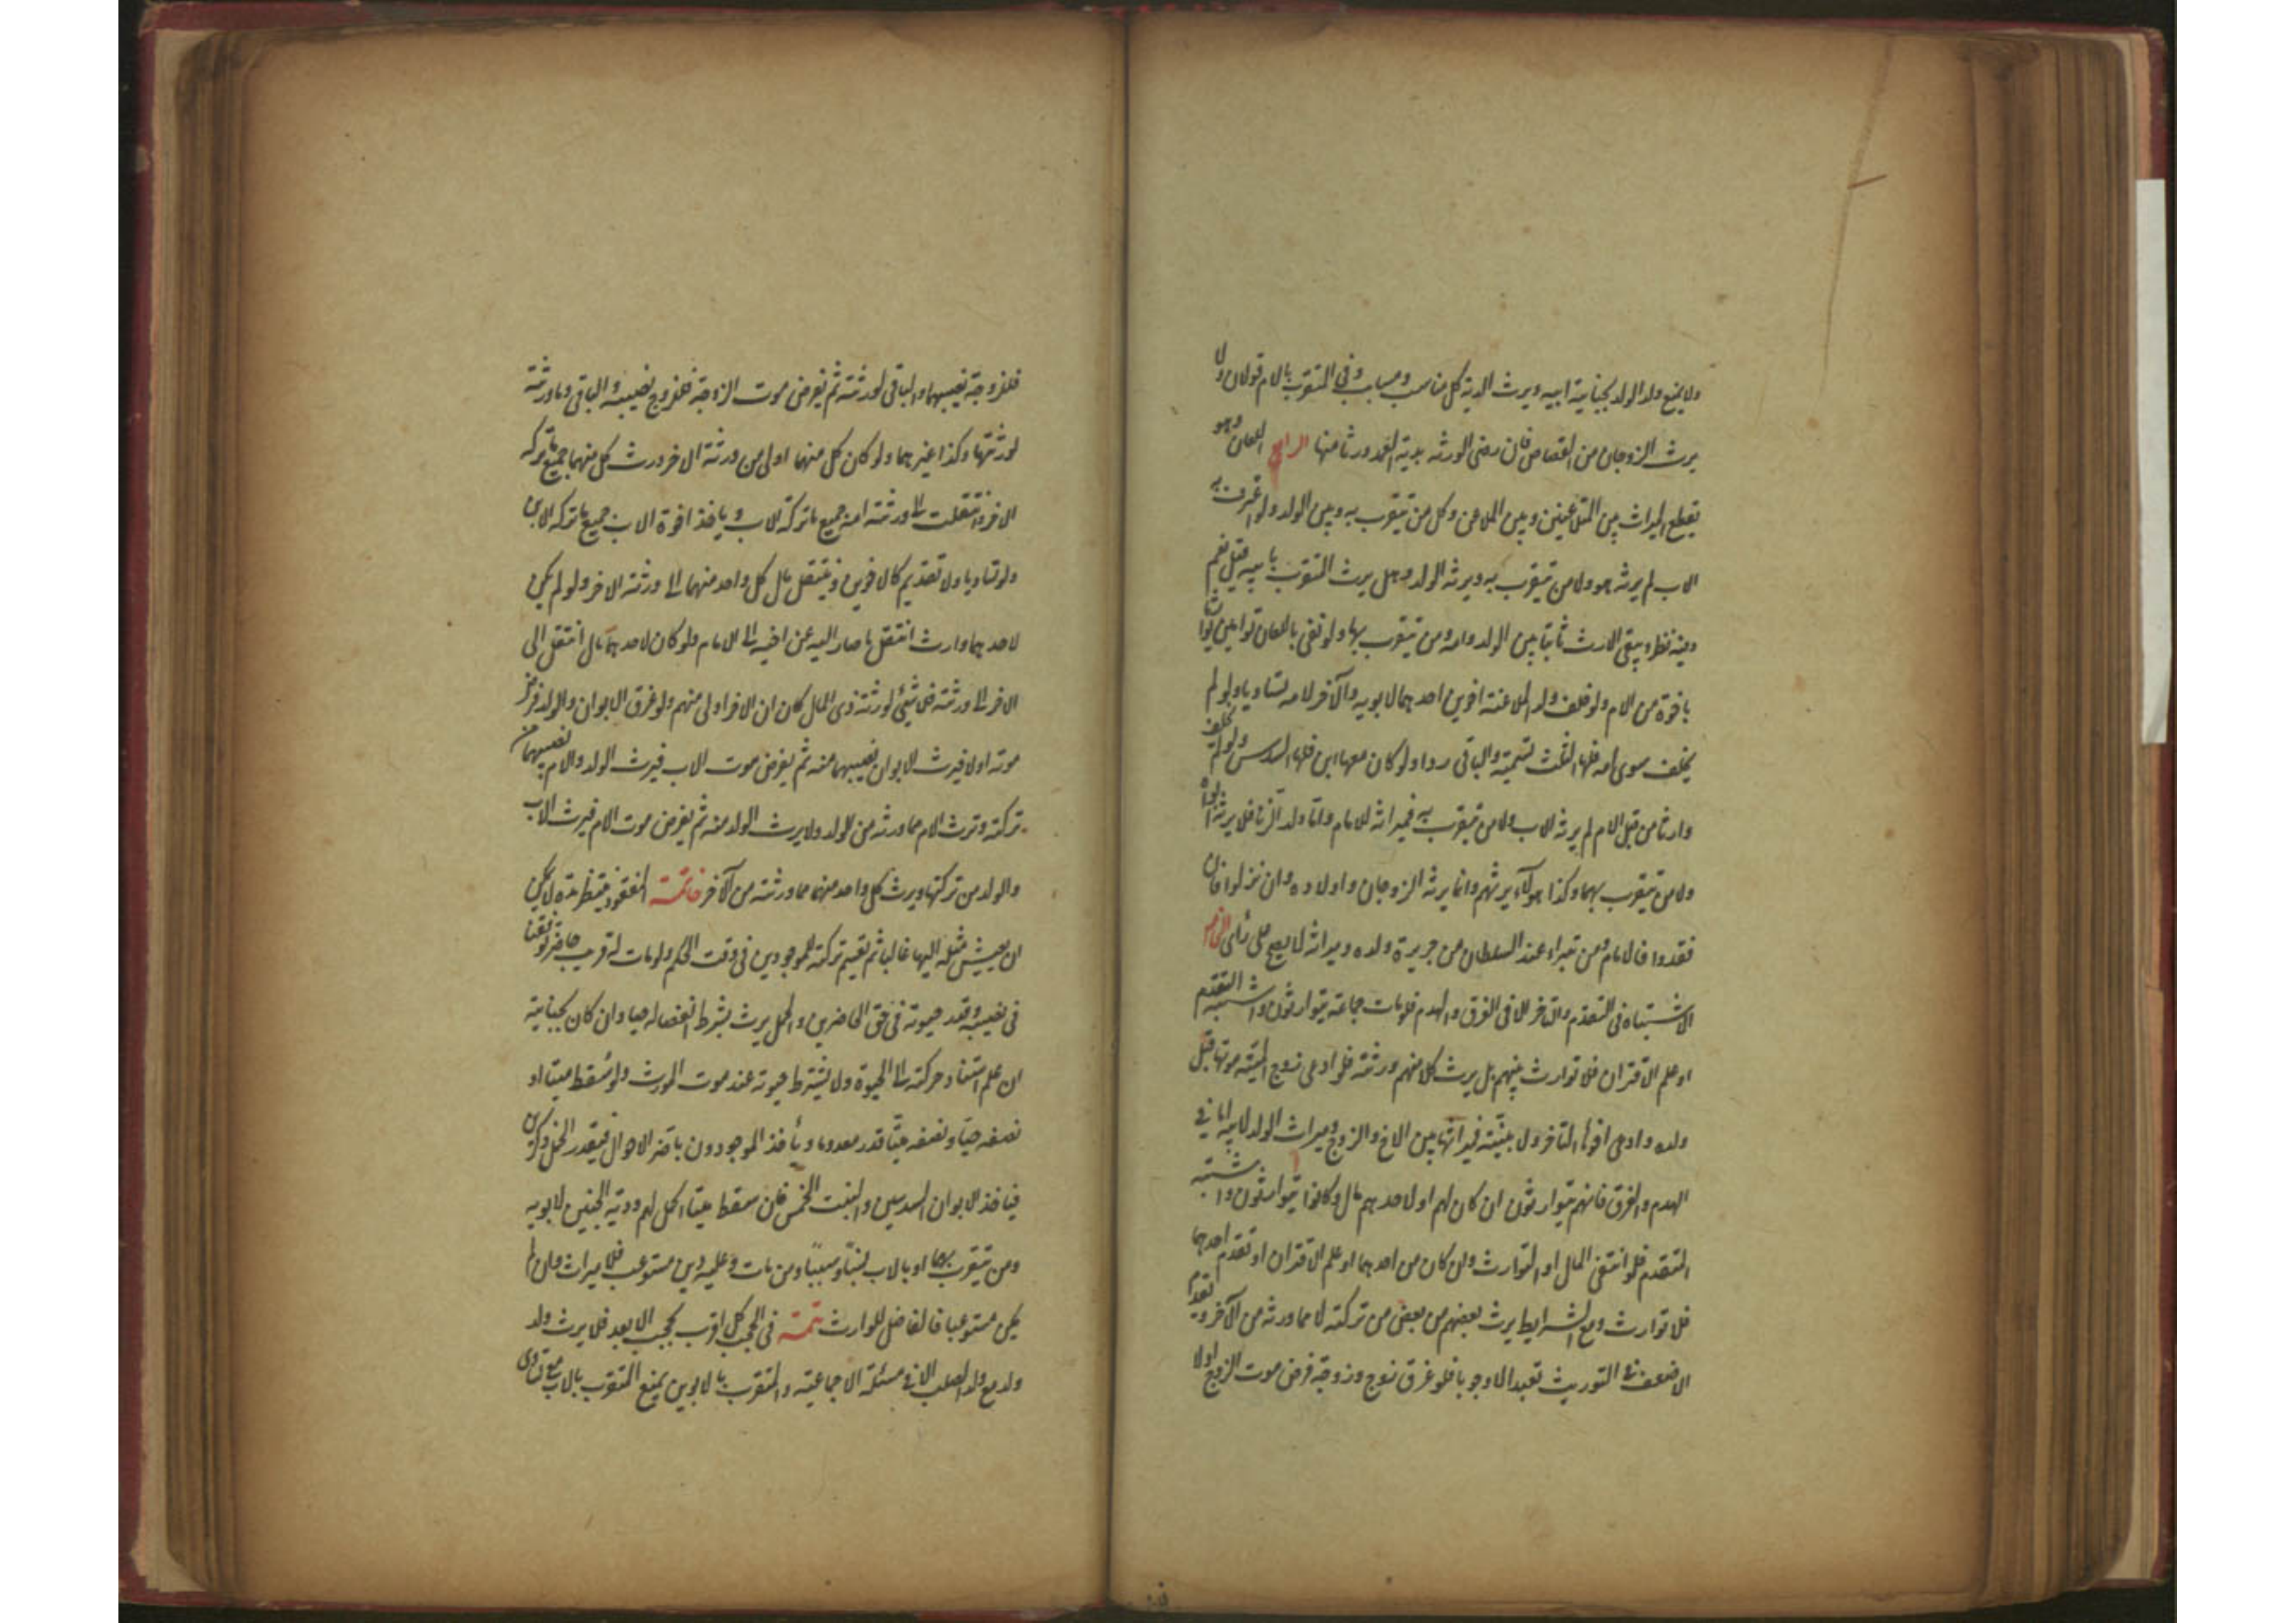 ولا يمنع ولد الولد بجناية ابيه ويرث الدية كل مناسب ومسابب وفي المتقرب بالام قولان ولا
يرث الزوجان من القصاص فان رضى الورثه بدية العمد ورثا منها الرابع اللعان وهو
يقطع الميراث بين المتلاعنين وبين الملاعن وكل من يتقرب به وبين الولد ولو اعترف به
الاب لم يرثه هو ولا من يتقرب به ويرثه الولد وهل يرث المتقرب بابيه قيل نعم
وفيه نظر ويبقى الارث ثابتا بين الولد وامه ومن يتقرب بها ولو نفى باللعان توامين توارثا
باخوة من الام ولو خلف ولد الملاعنة اخوين احدهما لابويه والآخر لامه تساويا ولو لم
يخلف سوى امه فلها الثلث تسمية والباقى ردا ولو كان معها ابن فلها السدس ولو لم يخلف
وارثا من قبل الام لم يرثه الاب ولا من يتقرب به فميراثه للامام واما ولد الزنا فلا يرثه ابواه
ولا من يتقرب بهما وكذا هو لا يرثهم وانما يرثه الزوجان واولاده وان نزلوا فان
فقدوا فالامام ومن تبراء عند السلطان من جريرة ولده وميراثه لا يصح على رأى الخامس
الاشتباه فى التقدم والتاخر الا فى الغرق والهدم فلو مات جماعة يتوارثون واشتبه التقدم
او علم الاقتران فلا توارث بينهم بل يرث كلا منهم ورثته فلو ادعى زوج الميتة موتها قبل
ولده وادعى اخوها التاخر ولا بينة فميراثها بين الاخ والزوج وميراث الولد لابيه اما في
الهدم والغرق فانهم يتوارثون ان كان لهم او لاحدهم مال وكانوا يتوارثون واشتبه
المتقدم فلو انتفى المال او التوارث ولو كان من احدهما او علم الاقتران او تقدم احدهما
فلا توارث ومع الشرايط يرث بعضهم من بعض من تركته لا مما ورثه من الآخر ويقدم
الاضعف في التوريث تعبدا لا وجوبا فلو غرق زوج وزوجة فرض موت الزوج اولا
فللزوجة نصيبها والباقى لورثته ثم يفرض موت الزوجة فللزوج نصيبه والباقى وما ورثته
لورثتها وكذا غيرهما ولو كان كل منهما اولى من ورثة الاخر ورث كل منهما جميع ما تركه
الاخر وانتقلت الى ورثته جميع ما تركه الاب وياخذ اخوة الاب جميع ما تركه الابن
ولو تساويا ولا تقديم كالاخوين وينتقل مال كل واحد منهما الى ورثة الاخر ولو لم يكن
لاحدهما وارث انتقل ما صار اليه عن اخيه الى الامام ولو كان لاحدهما مال انتقل الى
الاخر الى ورثته فلا شيئ لورثة ذى المال كان ان الاخر اولى منهم ولو غرق الابوان والولد فرض
موته اولا فيرث الابوان نصيبهما منه ثم يفرض موت الاب فيرث الولد والام نصيبهما من
تركته وترث الام مما ورثه من الولد ولا يرث الولد منه ثم يفرض موت الام فيرث الاب
والولد من تركتها ويرث كل واحد منهما مما ورثته من الآخر خاتمة المفقود ينتظر مدة لا يمكن
ان يعيش مثله اليها غالبا ثم تقسم تركته للموجودين فى وقت الحكم ولو مات له قريب حاضر توقفنا
فى نصيبه وقدر حيوته فى حق الحاضرين والحمل يرث بشرط انفصاله حيا وان كان بجناية
ان علم استناد حركته الى الحيوة ولا يشترط حيوته عند موت المورث ولو سقط ميتا او
نصفه حيا ونصفه ميتا قدر معدوما ويأخذ الموجودون باضر الاحوال فيقدر الحمل ذكرين
فياخذ الابوان السدسين والبنت الخمس فان سقط ميتا اكمل لهم ودية الجنين لابويه
ومن يتقرب بهما او بالاب نسبا وسببا ومن مات وعليه دين مستوعب فلا ميراث وان لم
يكن مستوعبا فالفاضل للوارث تتمة فى الحجب كل اقرب يحجب الابعد فلا يرث ولد
ولد مع ولد الصلب الا في مسئلة الاجماعية والمتقرب بالابوين يمنع المتقرب بالاب مع تساوى